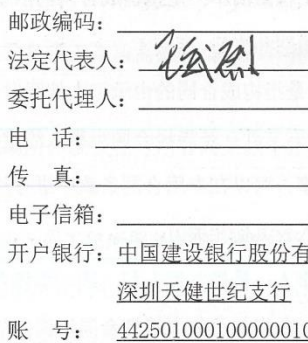 邮政编码：
法定代表人：
委托代理人：
电  话：
传  真：
电子信箱：
开户银行：中国建设银行股份有
深圳天健世纪支行
账  号：44250100010000010